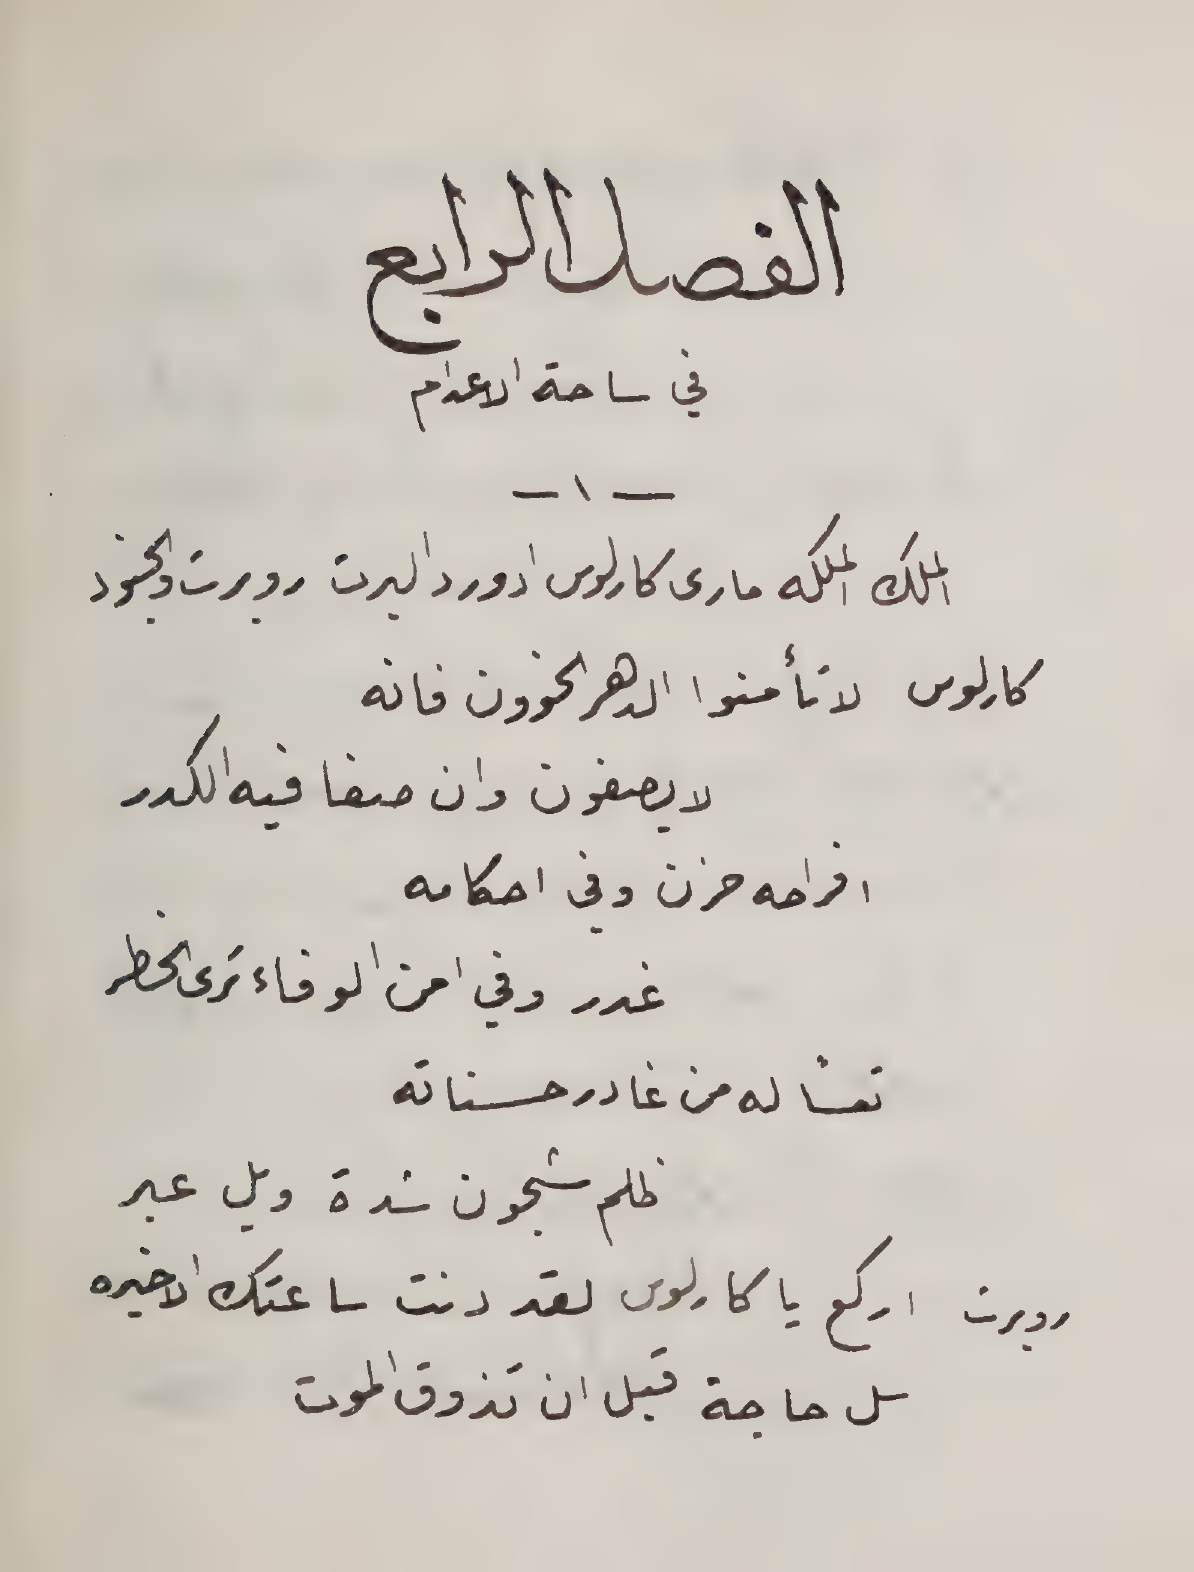 الفصل الرابع
في ساحة الاعدام
— ١ —
الملك الملكه مارى كارلوس ادورد البرت روبرت والجنود
كارلوس لا تأمنوا الدهر الخوون فانه
لا يصفون وان صفا فيه الكدر
افراحه حزن وفي احكامه
غدر وفي امن الوفاء ترى الخطر
تعسًا له من غادر حسناته
ظلم شجون شدة ويل عبر
روبرت اركع يا كارلوس لقد دنت ساعتك الاخيره
سل حاجة قبل ان تذوق الموت